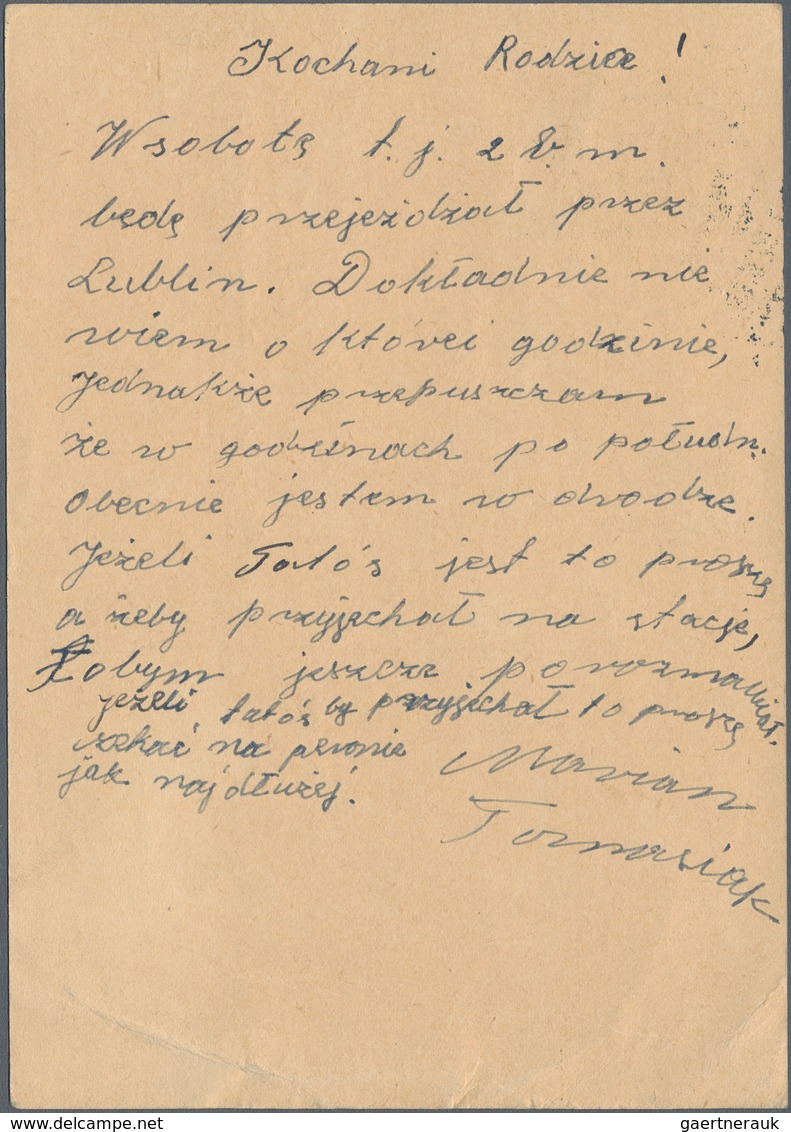 Kochani Rodzice!
W sobotę t.j. 2 b. m.
będę przejeżdżał przez
Lublin. Dokładnie nie
wiem o którei godzinie,
jednakże przepuszczam
że w godzinach po połudn.
obecnie jestem w drodze.
Jeżeli Tatóś jest to proszę
a żeby przyjechał na stację,
żobym jeszcze porozmawiał.
jeżeli tatóś by przyjechał to proszę
czekać na peronie
jak najdłużej.
Marian
Tomasiak
delcampe.net
gaertnerauk